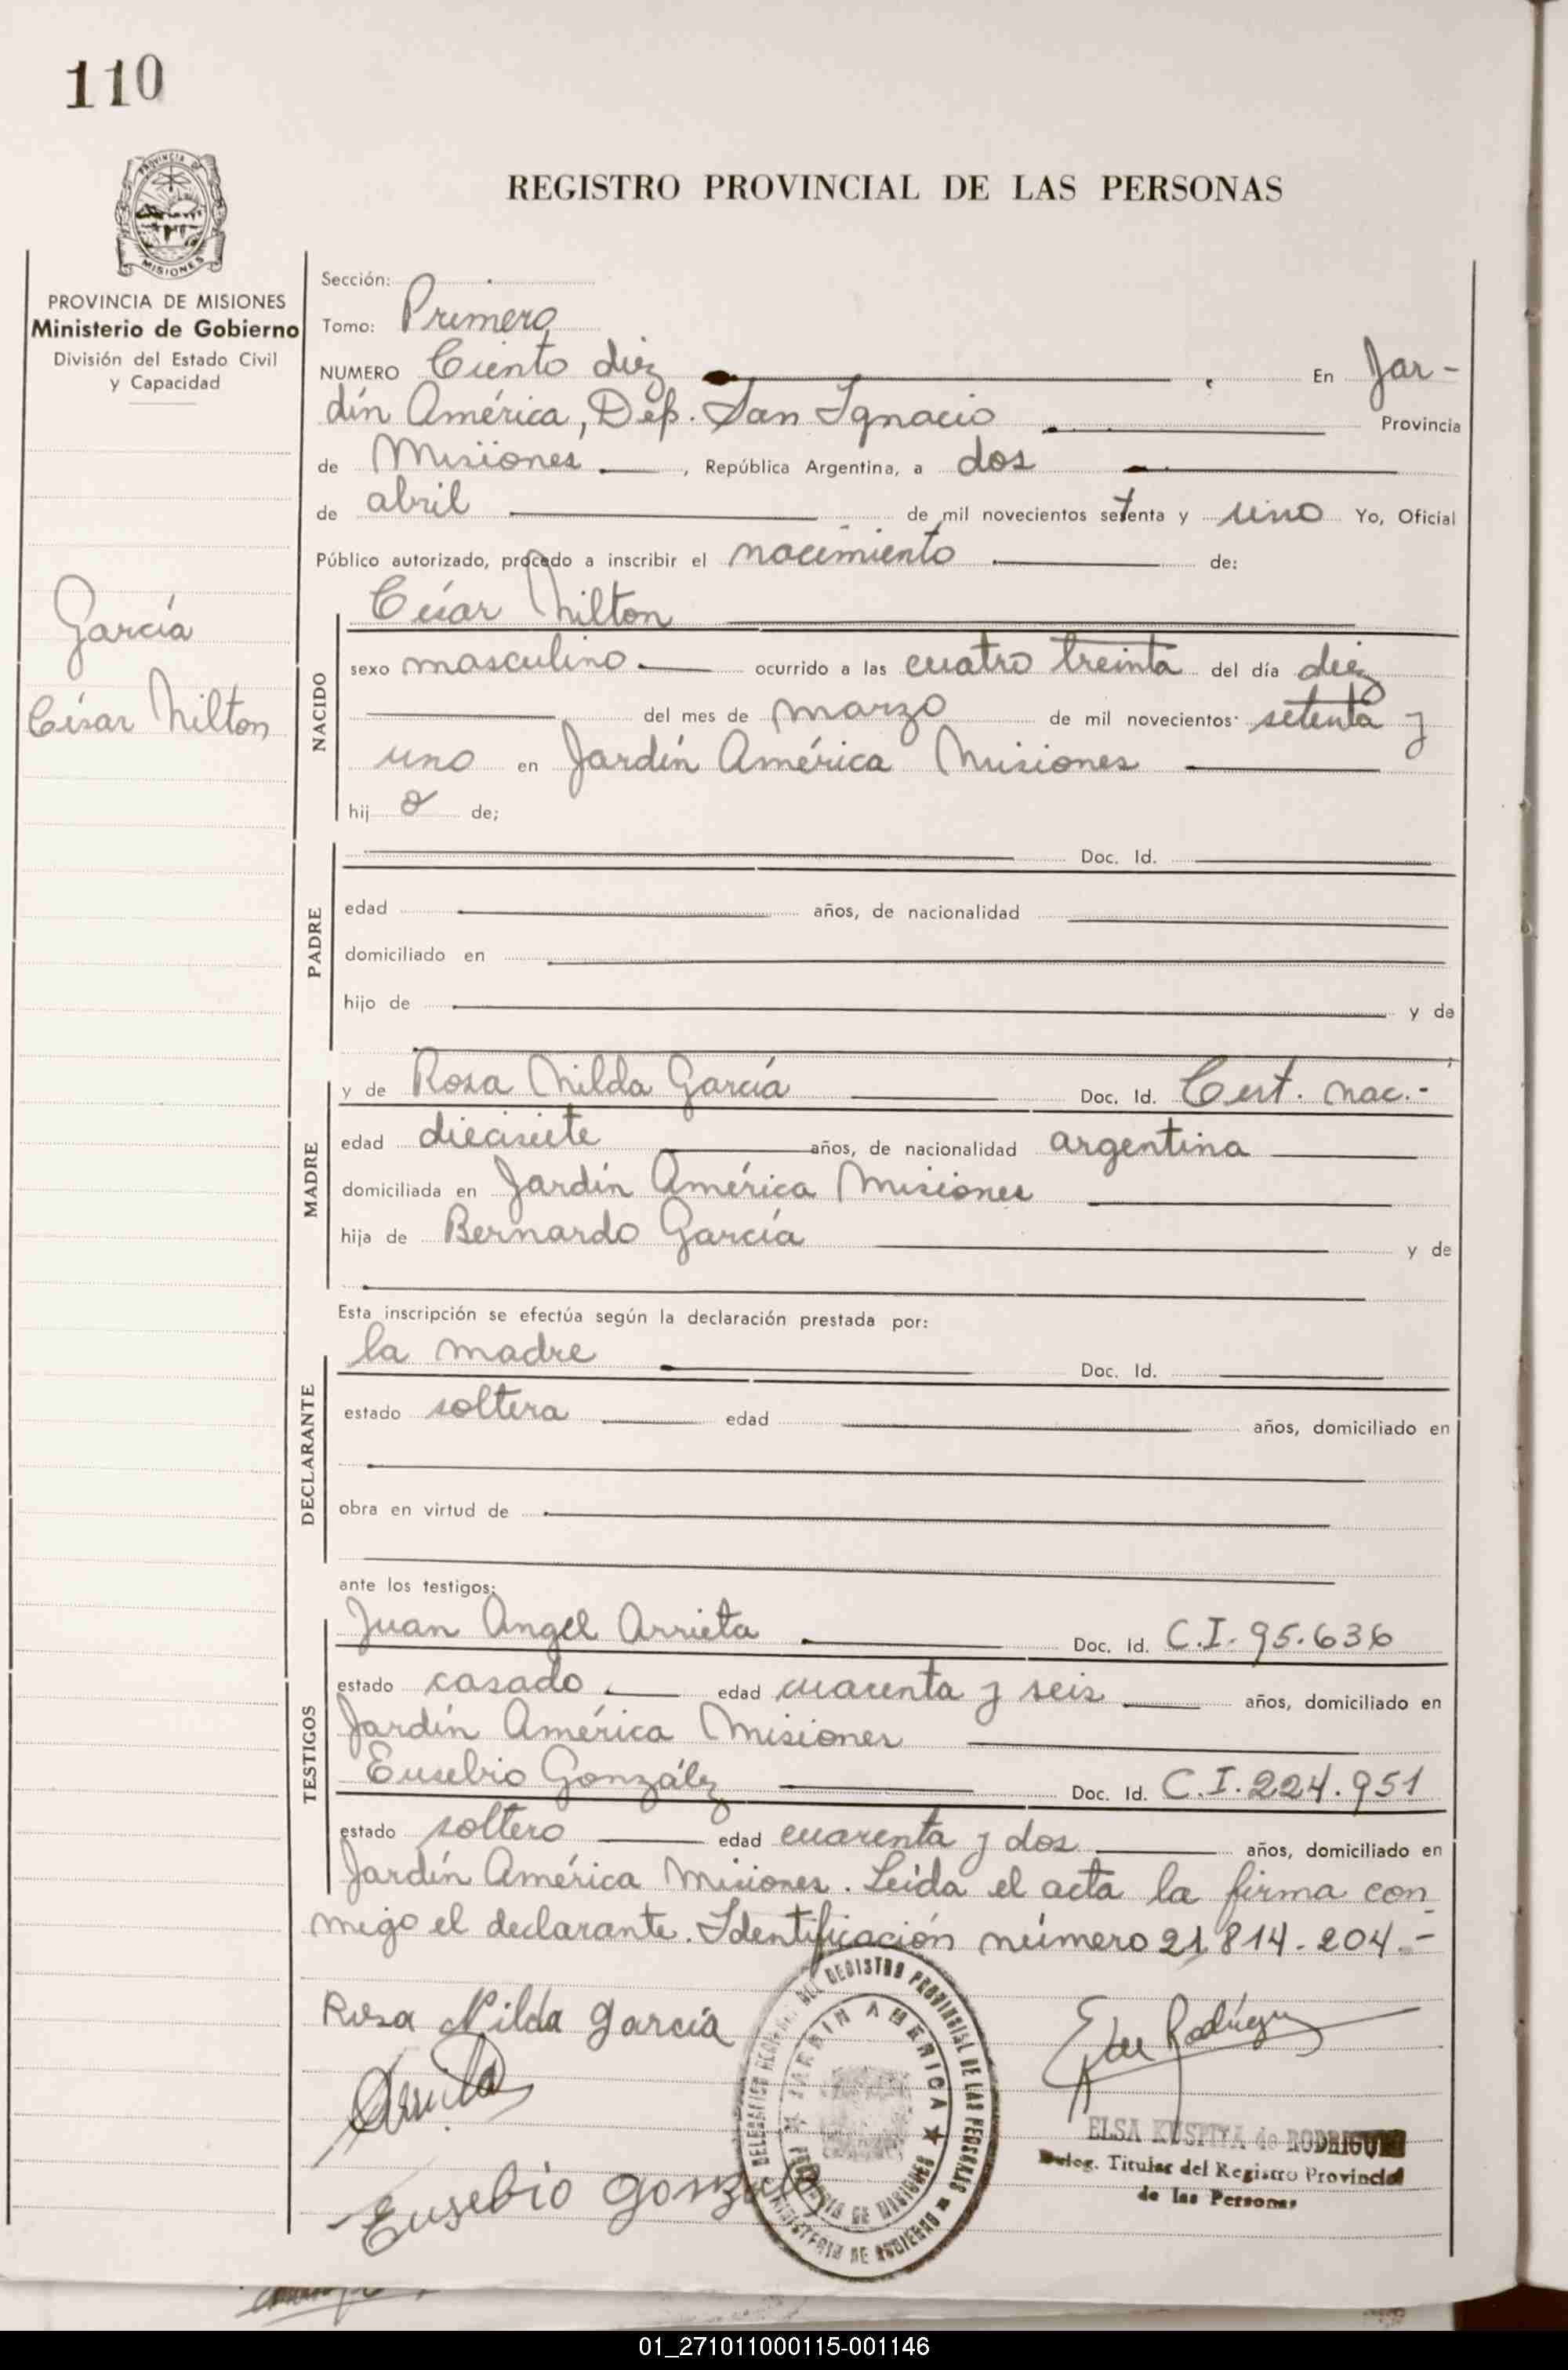 110
PROVINCIA DE MISIONES
MISIONES
PROVINCIA DE MISIONES
Ministerio de Gobierno
División del Estado Civil
y Capacidad
García
César Nilton
REGISTRO PROVINCIAL DE LAS PERSONAS
Sección:
Tomo: Primero
NUMERO Ciento diez En Jar-
dín América, Dep. San Ignacio Provincia
de Misiones, República Argentina, a dos
de abril de mil novecientos setenta y uno Yo, Oficial
Público autorizado, procedo a inscribir el nacimiento de:
NACIDO
César Nilton
sexo masculino ocurrido a las cuatro treinta del día diez
del mes de marzo de mil novecientos setenta y
uno en Jardín América Misiones
hijo de;
PADRE
Doc. Id.
edad años, de nacionalidad
domiciliado en
hijo de y de
MADRE
y de Rosa Nilda García Doc. Id. Cert. nac.-
edad diecisiete años, de nacionalidad argentina
domiciliada en Jardín América Misiones
hija de Bernardo García y de
Esta inscripción se efectúa según la declaración prestada por:
DECLARANTE
la madre Doc. Id.
estado soltera edad años, domiciliado en
obra en virtud de
ante los testigos:
TESTIGOS
Juan Angel Arrieta Doc. Id. C.I. 95.636
estado casado edad cuarenta y seis años, domiciliado en
Jardín América Misiones
Eusebio González Doc. Id. C.I. 224.951
estado soltero edad cuarenta y dos años, domiciliado en
Jardín América Misiones. Leída el acta la firma con
migo el declarante. Identificación número 21.814.204.-
Rosa Nilda García
Arrieta
Eusebio Gonzalez
DEL REGISTRO PROVINCIAL DE LAS PERSONAS
JARDIN AMERICA
PROVINCIA DE MISIONES
MINISTERIO DE GOBIERNO
Rodríguez
ELSA de RODRIGUEZ
Deleg. Titular del Registro Provincial
de las Personas
01_271011000115-001146